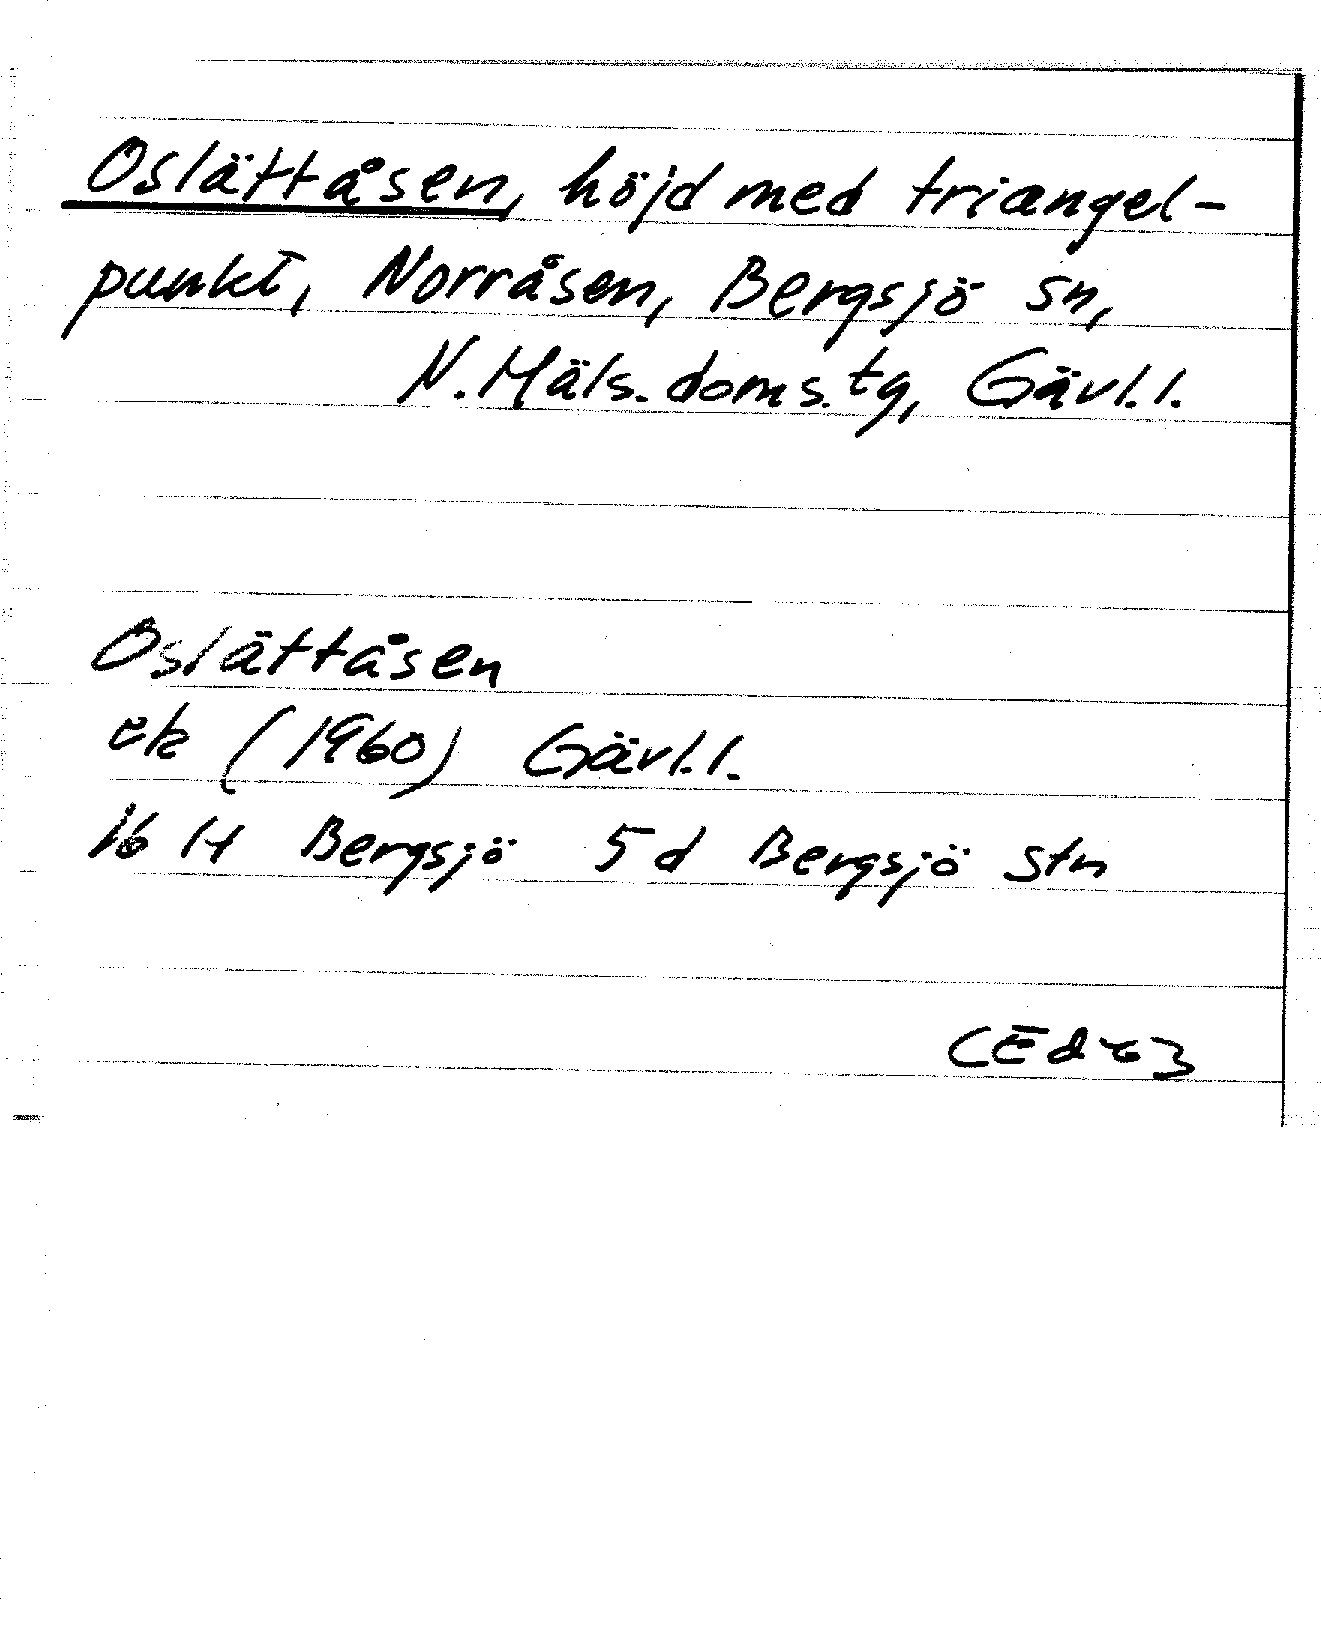 Oslättåsen, höjd med triangel-
punkt, Norråsen, Bergsjö sn,
N. Häls. doms. tg, Gävl. l.
Oslättåsen
ek (1960) Gävl. l.
16 H Bergsjö 5 d Bergsjö stn
CEd 63